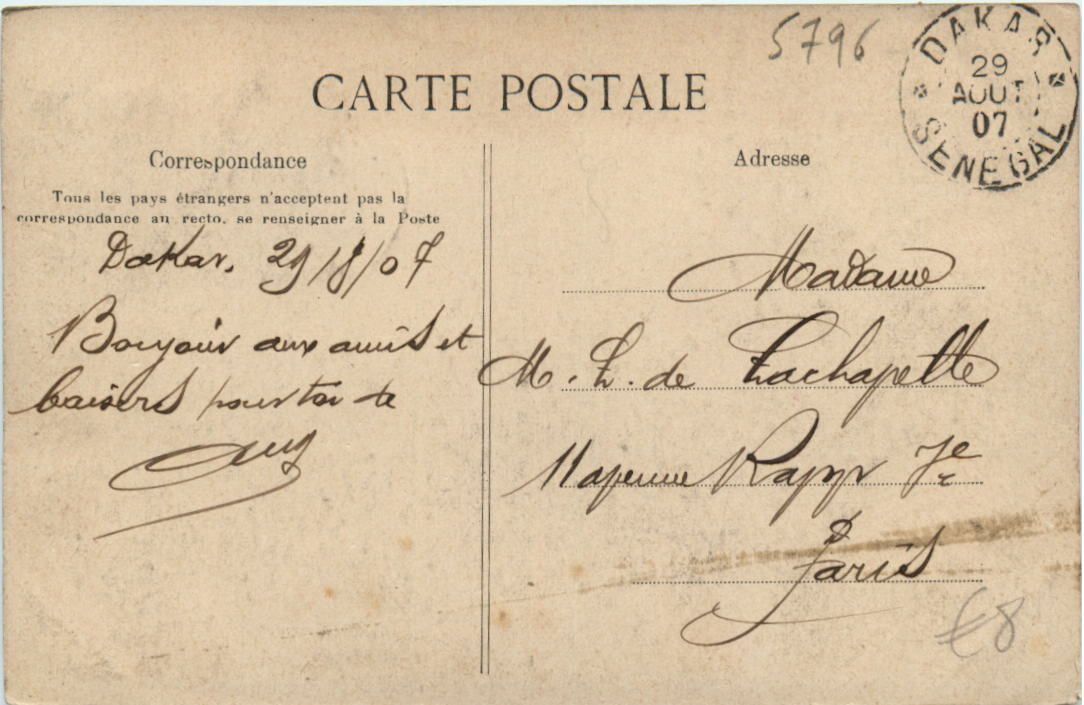 5796
DAKAR
29
AOUT
07
SENEGAL
CARTE POSTALE
Correspondance
Tous les pays étrangers n'acceptent pas la
correspondance au recto, se renseigner à la Poste
Dakar, 29/8/07
Bonjour aux amis et
baisers pour toi de
Adresse
Madame
M. L. de Lachapelle
11 avenue Rapp 7e
Paris
£8